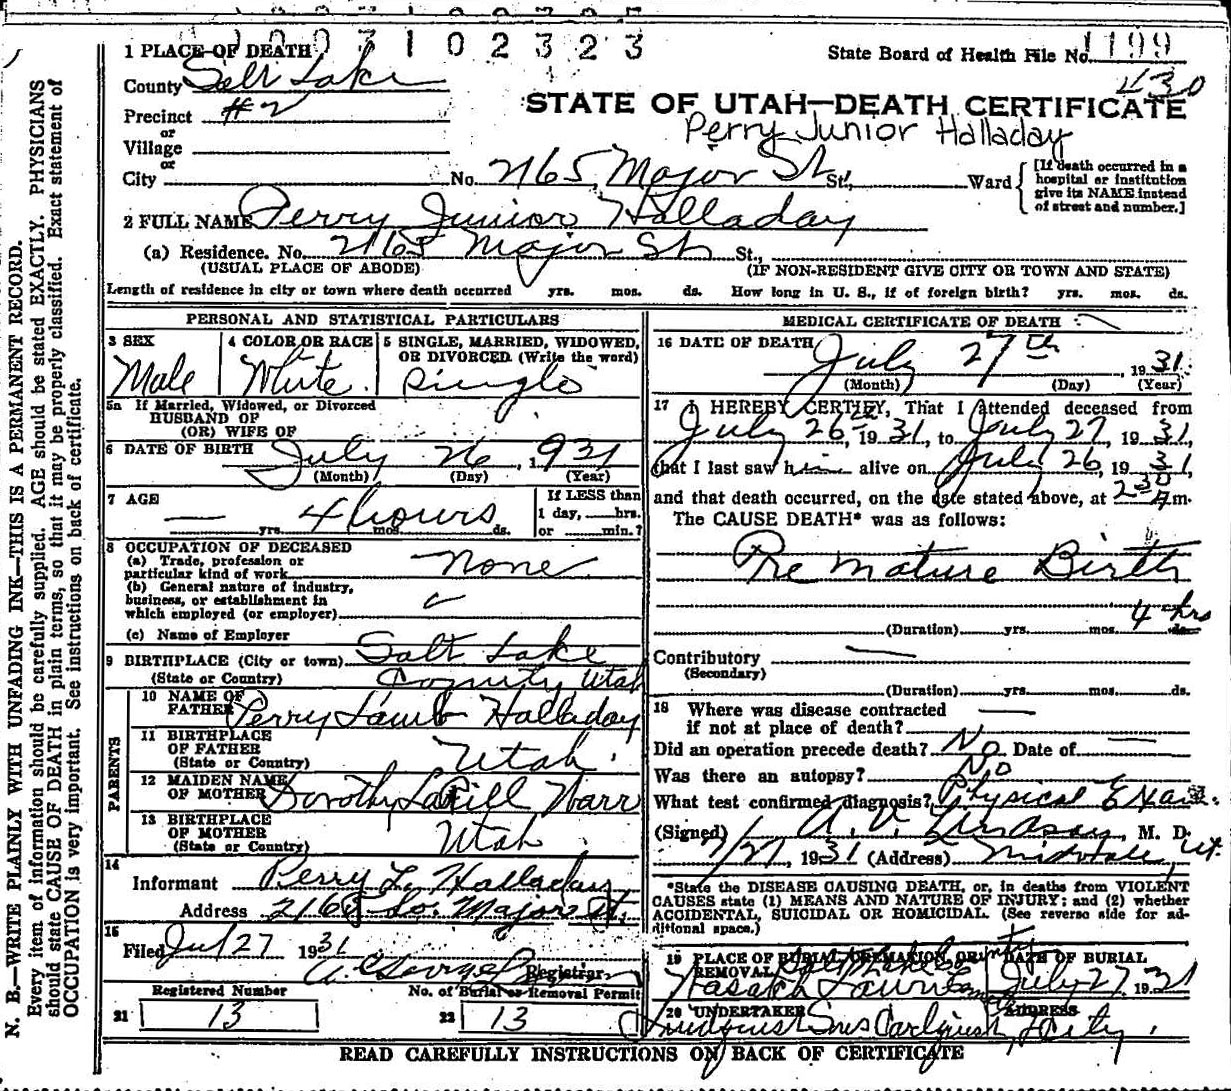 1 0 0 3 1 0 2 3 2 3
State Board of Health File No. 1199
430
1 PLACE OF DEATH
County Salt Lake
STATE OF UTAH—DEATH CERTIFICATE
Precinct #2
Perry Junior Halladay
or
Village
or
City No. 2165 Major St St., Ward
[If death occurred in a
hospital or institution
give its NAME instead
of street and number.]
2 FULL NAME Perry Junior Halladay
(a) Residence. No. 2165 Major St St.,
(USUAL PLACE OF ABODE) (IF NON-RESIDENT GIVE CITY OR TOWN AND STATE)
Length of residence in city or town where death occurred yrs. mos. ds. How long in U. S., if of foreign birth? yrs. mos. ds.
PERSONAL AND STATISTICAL PARTICULARS
3 SEX
Male
4 COLOR OR RACE
White.
5 SINGLE, MARRIED, WIDOWED,
OR DIVORCED. (Write the word)
Single
5a If Married, Widowed, or Divorced
HUSBAND OF
(OR) WIFE OF
6 DATE OF BIRTH July 26, 1931
(Month) (Day) (Year)
7 AGE
— yrs. 4 hours mos. ds.
If LESS than
1 day, hrs.
or min.?
8 OCCUPATION OF DECEASED
(a) Trade, profession or
particular kind of work None
(b) General nature of industry,
business, or establishment in
which employed (or employer)
(c) Name of Employer
9 BIRTHPLACE (City or town) Salt Lake
(State or Country) County Utah
PARENTS
10 NAME OF
FATHER Perry Lamb Halladay
11 BIRTHPLACE
OF FATHER
(State or Country) Utah.
12 MAIDEN NAME
OF MOTHER Dorothy Warr
13 BIRTHPLACE
OF MOTHER
(State or Country) Utah
14
Informant Perry L. Halladay
Address 2165 So. Major St.
15
Filed Jul 27 1931
Registrar
Registered Number No. of Burial or Removal Permit
21 13 22 13
MEDICAL CERTIFICATE OF DEATH
16 DATE OF DEATH July 27th, 1931
(Month) (Day) (Year)
17 I HEREBY CERTIFY, That I attended deceased from
July 26, 1931, to July 27, 1931,
that I last saw him alive on July 26, 1931,
and that death occurred, on the date stated above, at 2:30 A m.
The CAUSE DEATH* was as follows:
Pre mature Birth
(Duration) yrs. mos. 4 hrs ds.
Contributory —
(Secondary)
(Duration) yrs. mos. ds.
18 Where was disease contracted —
if not at place of death?
Did an operation precede death? No. Date of —
Was there an autopsy? No
What test confirmed diagnosis? Physical Exam.
(Signed) A. V. Lindsay, M. D.
7/27, 1931 (Address) Midvale, Ut.
*State the DISEASE CAUSING DEATH, or, in deaths from VIOLENT
CAUSES state (1) MEANS AND NATURE OF INJURY: and (2) whether
ACCIDENTAL, SUICIDAL OR HOMICIDAL. (See reverse side for ad-
ditional space.)
19 PLACE OF BURIAL, CREMATION, OR DATE OF BURIAL
REMOVAL Salt Lake County
Wasatch Lawn July 27 1931
20 UNDERTAKER ADDRESS
City.
READ CAREFULLY INSTRUCTIONS ON BACK OF CERTIFICATE
N. B.—WRITE PLAINLY WITH UNFADING INK—THIS IS A PERMANENT RECORD.
Every item of information should be carefully supplied. AGE should be stated EXACTLY. PHYSICIANS
should state CAUSE OF DEATH in plain terms, so that it may be properly classified. Exact statement of
OCCUPATION is very important. See instructions on back of certificate.